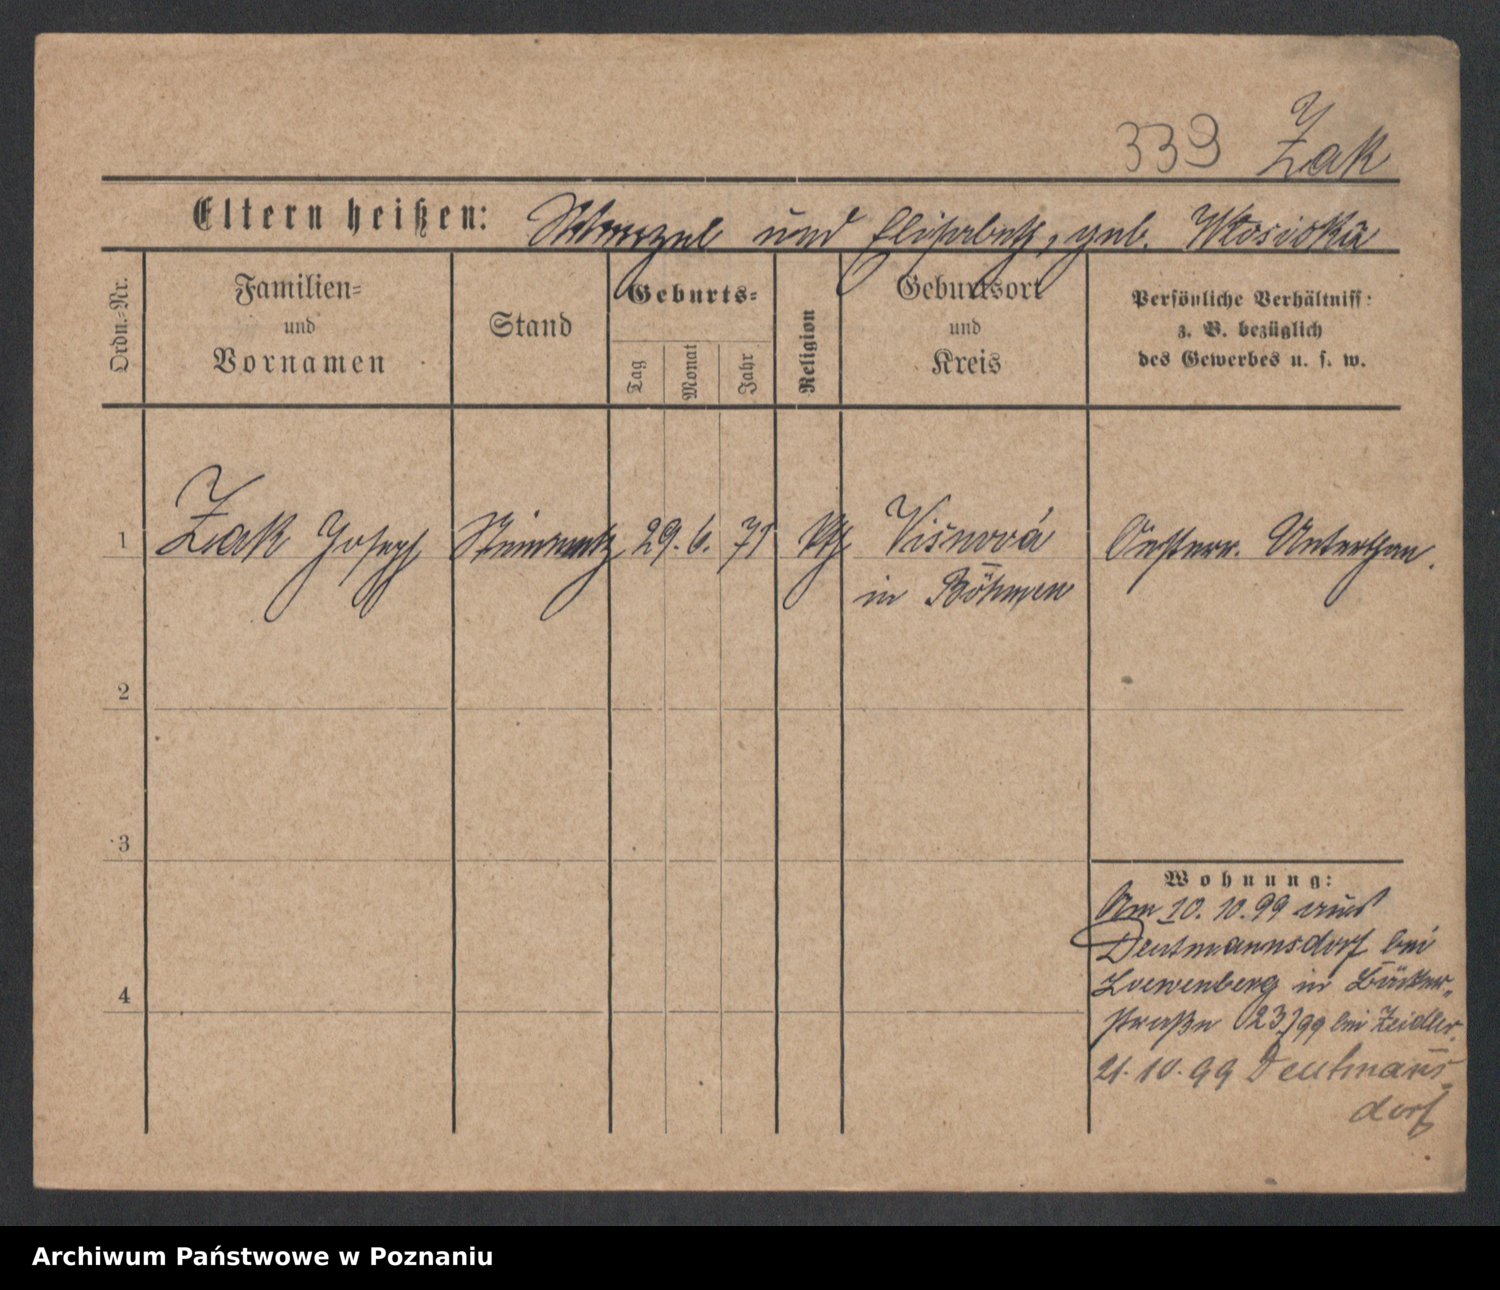 339 Žak
Eltern heißen: Wenzel und Elisabeth, geb. Wosicka
Ordn.-Nr.
Familien-
und
Vornamen
Stand
Geburts-
Tag
Monat
Jahr
Religion
Geburtsort
und
Kreis
Persönliche Verhältniss:
z. B. bezüglich
des Gewerbes u. s. w.
1 Žak Joseph Steinmetz 29. 6. 71 kth Višnová Oesterr. Unterthan.
in Böhmen
2
3
4
Wohnung:
Am 10. 10. 99 aus
Deutmannsdorf bei
Loewenberg in Bäcker-
straße 23/99 bei Zeidler.
21. 10. 99 Deutmanns-
dorf
Archiwum Państwowe w Poznaniu